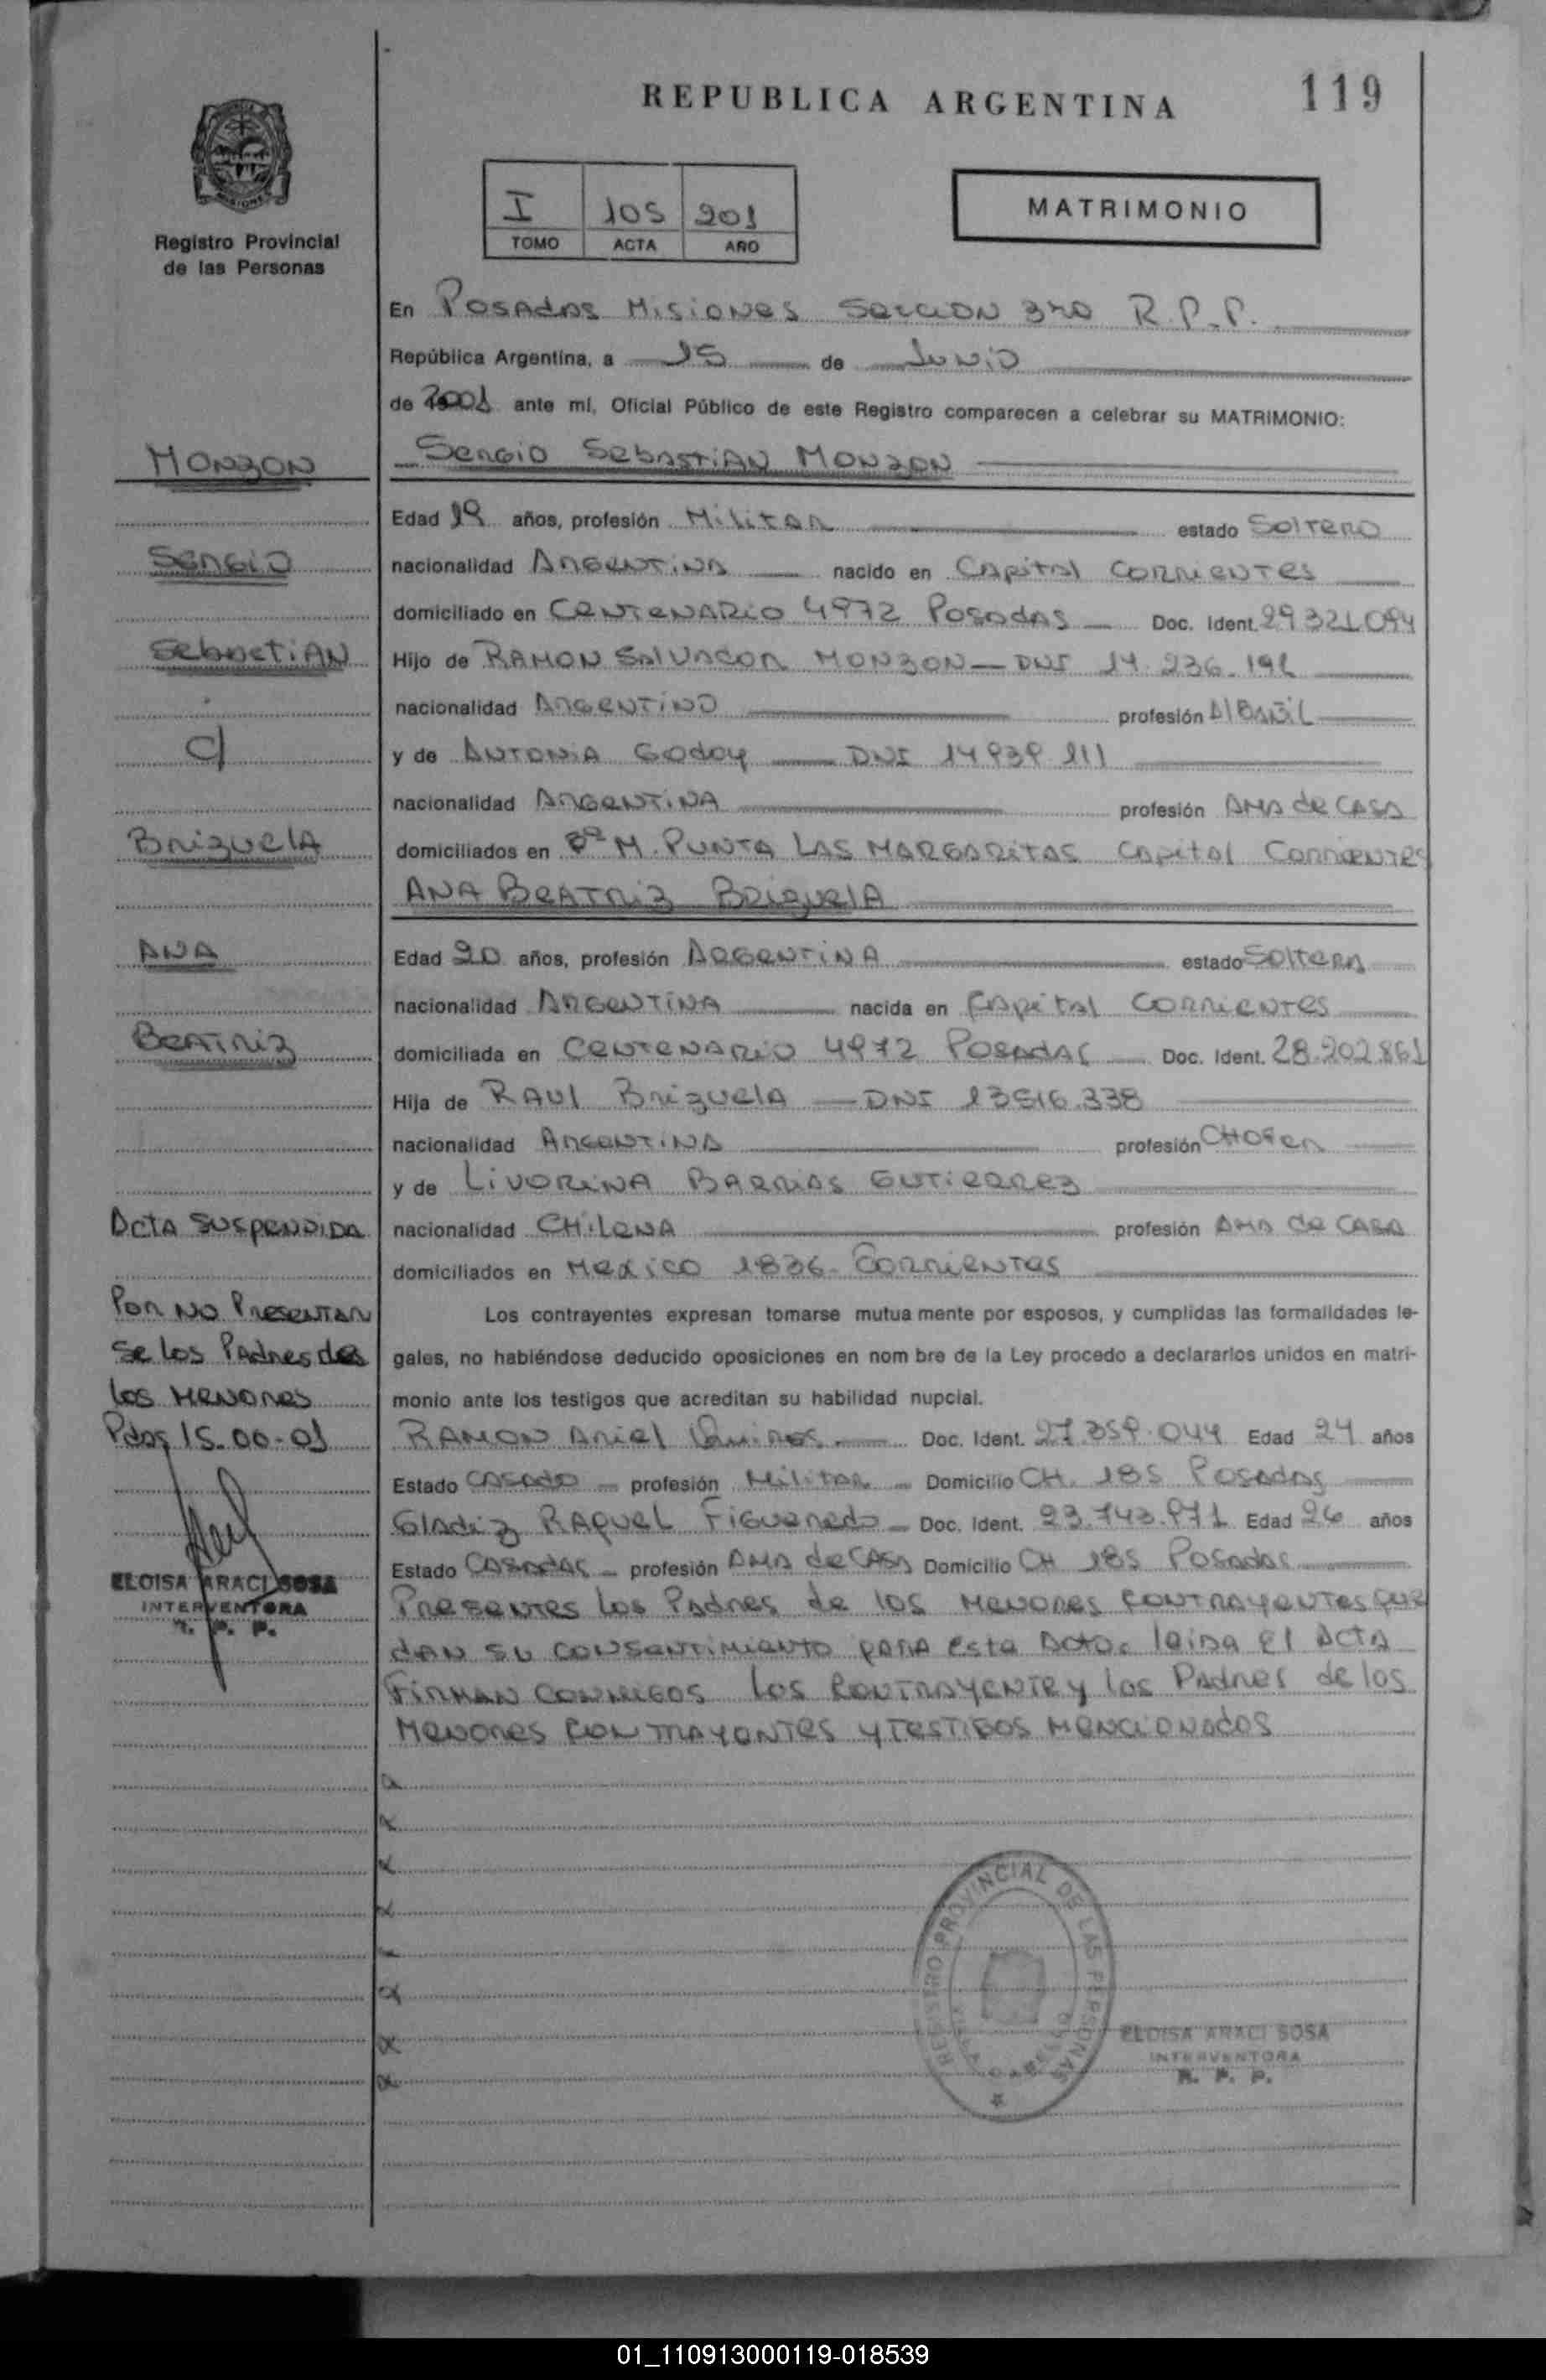 REPUBLICA ARGENTINA
119
I 105 201
TOMO ACTA AÑO
MATRIMONIO
Registro Provincial
de las Personas
En Posadas Misiones Seccion 3ra R.P.P.
República Argentina, a 15 de Junio
de 2001 ante mí, Oficial Público de este Registro comparecen a celebrar su MATRIMONIO:
MONZON
Sergio Sebastian Monzon
Edad 19 años, profesión Militar estado Soltero
Sergio
nacionalidad Argentina nacido en Capital Corrientes
domiciliado en Centenario 4972 Posadas Doc. Ident. 29321094
Sebastian
Hijo de Ramon Salvador Monzon DNI 14.236.191
nacionalidad Argentino profesión Albañil
c/
y de Antonia Godoy DNI 14939.111
nacionalidad Argentina profesión Ama de Casa
Brizuela
domiciliados en Bº M. Punta Las Margaritas Capital Corrientes
Ana Beatriz Brizuela
Ana
Edad 20 años, profesión Argentina estado Soltera
nacionalidad Argentina nacida en Capital Corrientes
Beatriz
domiciliada en Centenario 4972 Posadas Doc. Ident. 28.202.861
Hija de Raul Brizuela DNI 13516.338
nacionalidad Argentina profesión Chofer
y de Livorina Barrias Gutierrez
Acta Suspendida
nacionalidad Chilena profesión Ama de Casa
domiciliados en Mexico 1836 Corrientes
Por No Presentar
se los Padres de
los Menores
Pdas 15-06-01
ELOISA ARACI SOSA
INTERVENTORA
R. P. P.
Los contrayentes expresan tomarse mutua mente por esposos, y cumplidas las formalidades le-
gales, no habiéndose deducido oposiciones en nom bre de la Ley procedo a declararlos unidos en matri-
monio ante los testigos que acreditan su habilidad nupcial.
Ramon Ariel Quiros Doc. Ident. 27.359.044 Edad 24 años
Estado Casado profesión Militar Domicilio CH. 185 Posadas
Gladiz Raquel Figueredo Doc. Ident. 23.743.971 Edad 26 años
Estado Casadas profesión Ama de Casa Domicilio CH 185 Posadas
Presentes los Padres de los Menores contrayentes que
dan su consentimiento para este Acto. leida el Acta
Firman conmigos los contrayente y los Padres de los
Menores contrayentes y testigos mencionados
REGISTRO PROVINCIAL DE LAS PERSONAS
ELOISA ARACI SOSA
INTERVENTORA
R. P. P.
01_110913000119-018539